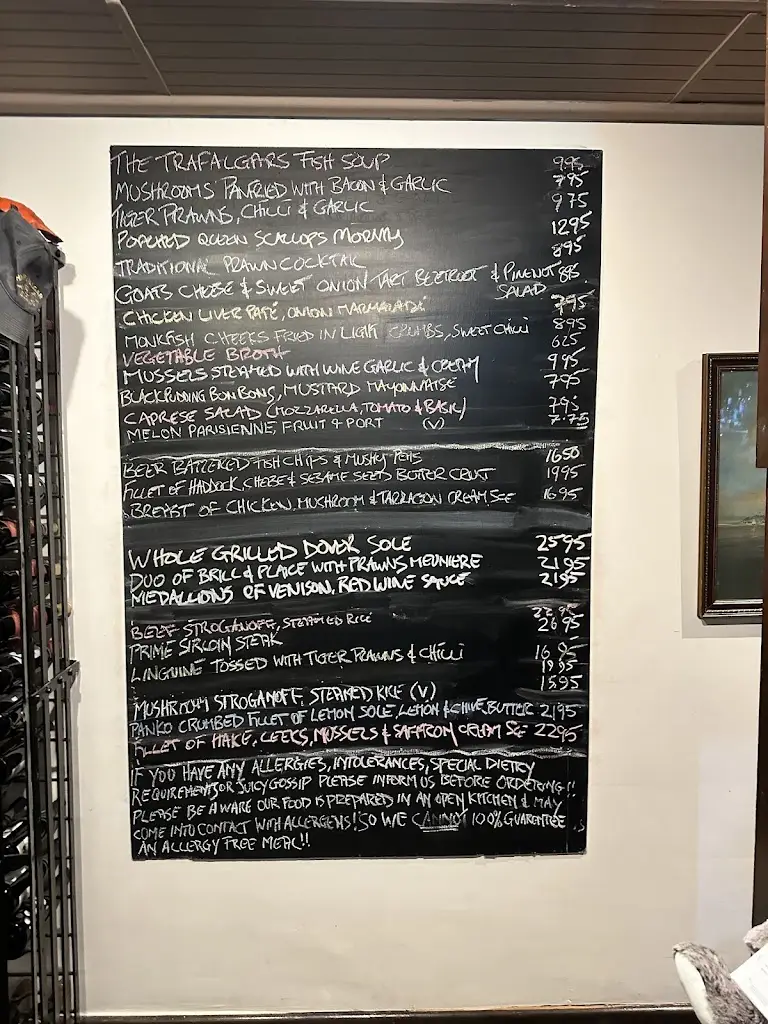 THE TRAFALGARS FISH SOUP 9.95
MUSHROOMS PANFRIED WITH BACON & GARLIC 795
TIGER PRAWNS, CHILLI & GARLIC 975
POACHED QUEEN SCALLOPS MORNAY 1295
TRADITIONAL PRAWN COCKTAIL 895
GOATS CHEESE & SWEET ONION TART BEETROOT & PINENUT 895
SALAD
CHICKEN LIVER PATÉ, ONION MARMALADE 795
MONKFISH CHEEKS FRIED IN LIGHT CRUMBS, SWEET CHILLI 895
VEGETABLE BROTH 625
MUSSELS STEAMED WITH WINE GARLIC & CREAM 995
BLACKPUDDING BON BONS, MUSTARD MAYONNAISE 795
CAPRESE SALAD (MOZZARELLA, TOMATO & BASIL) 795
MELON PARISIENNE, FRUIT & PORT (V) 7.75
BEER BATTERED FISH CHIPS & MUSHY PEAS 1650
FILLET OF HADDOCK, CHEESE & SESAME SEED BUTTER CRUST 1995
BREAST OF CHICKEN, MUSHROOM & TARRAGON CREAM SCE 1695
WHOLE GRILLED DOVER SOLE 2595
DUO OF BRILL & PLAICE WITH PRAWNS MEUNIERE 2195
MEDALLIONS OF VENISON, RED WINE SAUCE 2195
BEEF STROGANOFF, STEAMED RICE 22.95
PRIME SIRLOIN STEAK 2695
LINGUINE TOSSED WITH TIGER PRAWNS & CHILLI 1695
1995
MUSHROOM STROGANOFF, STEAMED RICE (V) 1595
PANKO CRUMBED FILLET OF LEMON SOLE, LEMON & CHIVE BUTTER 2195
FILLET OF HAKE, LEEKS, MUSSELS & SAFFRON CREAM SCE 2295
IF YOU HAVE ANY ALLERGIES, INTOLERANCES, SPECIAL DIETRY
REQUIREMENTS OR JUICY GOSSIP PLEASE INFORM US BEFORE ORDERING!!
PLEASE BE AWARE OUR FOOD IS PREPARED IN AN OPEN KITCHEN & MAY
COME INTO CONTACT WITH ALLERGENS! SO WE CANNOT 100% GUARENTEE
AN ALLERGY FREE MEAL!!